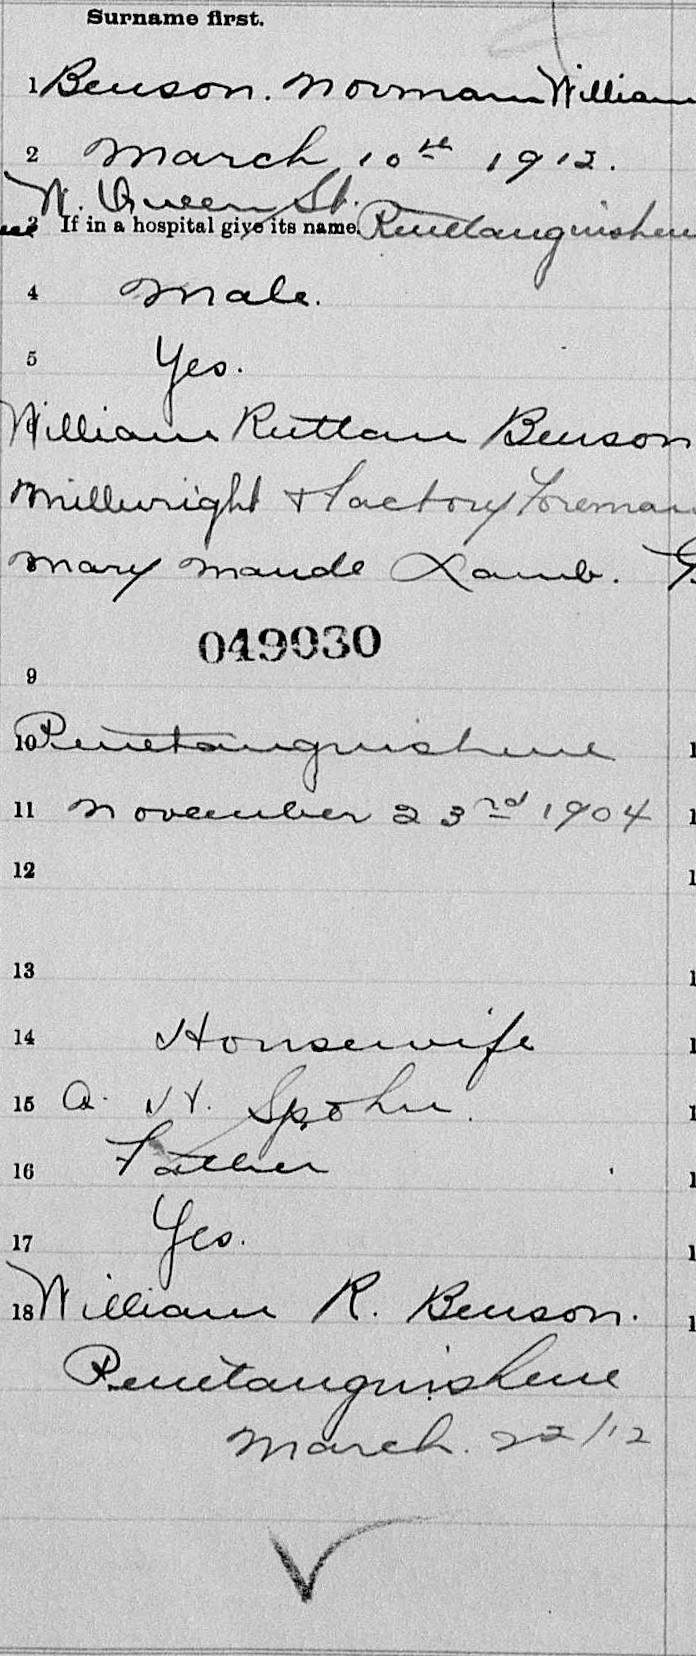 Surname first.
1 Benson. Norman William
2 March 10th 1912.
N. Queen St.
3 If in a hospital give its name. Penetanguishene
4 Male.
5 Yes.
William Rutlan Benson
Millwright & Factory Foreman
Mary Maude Lamb.
049030
9
10 Penetanguishene
11 November 23rd 1904
12
13
14 Housewife
15 A. H. Spohn.
16 Father
17 Yes.
18 William R. Benson.
Penetanguishene
March. 22/12